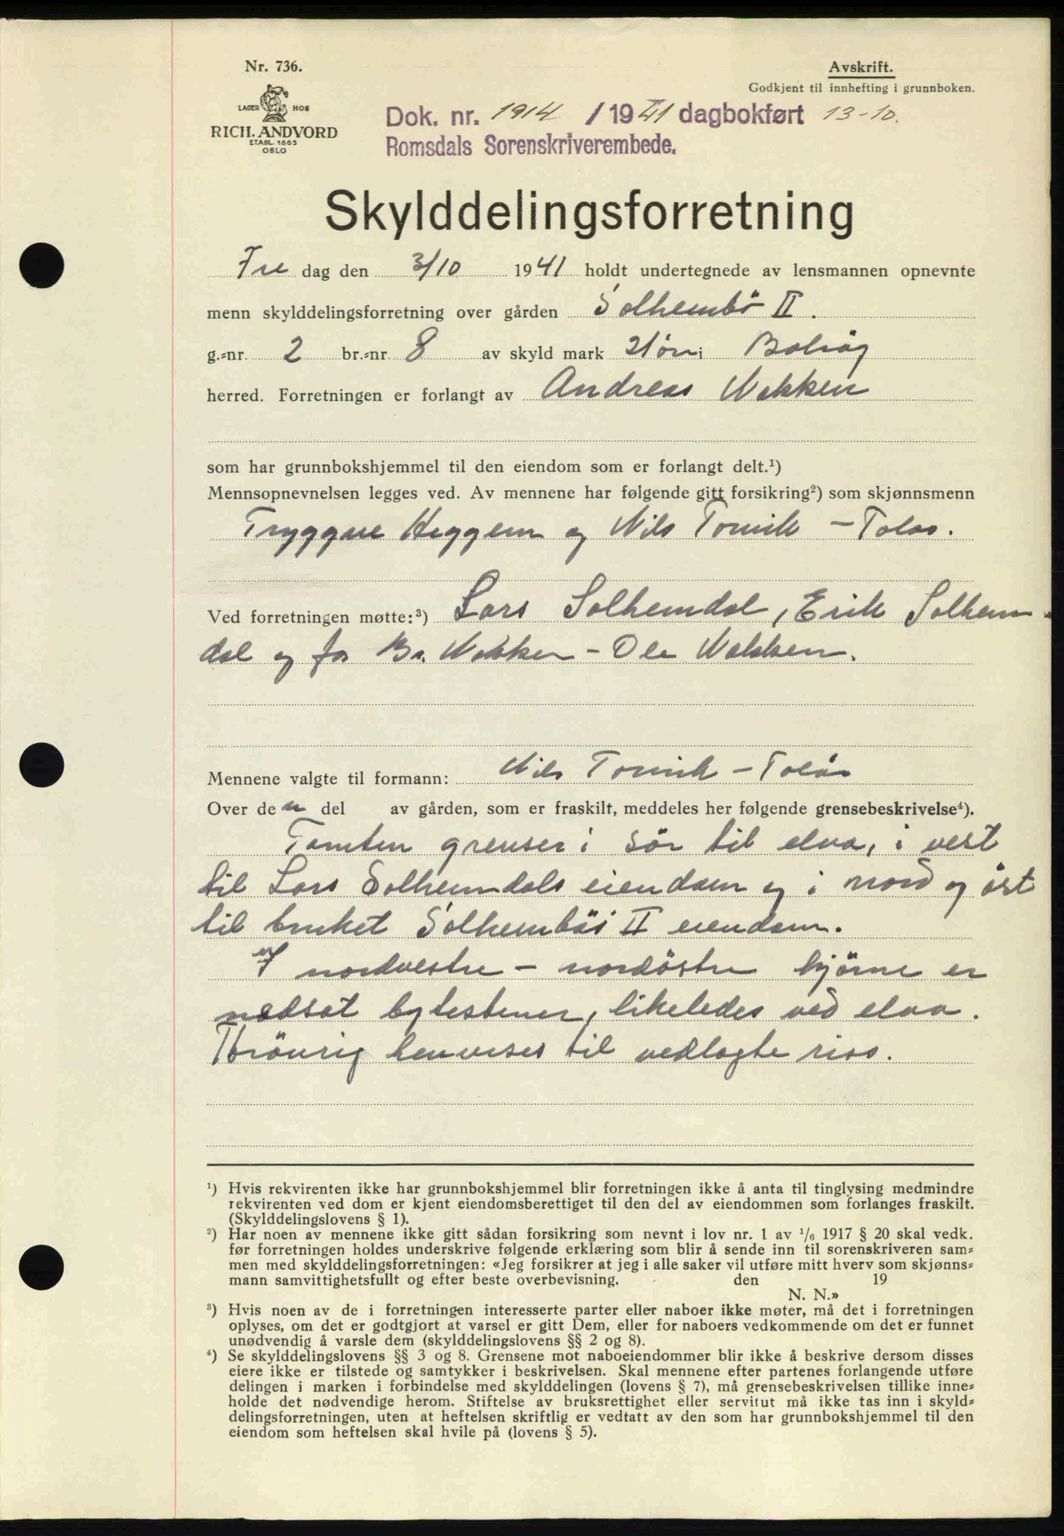 Nr. 736.
LAGER HOS
RICH. ANDVORD
ETABL. 1865
OSLO
Avskrift.
Godkjent til innhefting i grunnboken.
Dok. nr. 1914 / 1941 dagbokført 13-10.
Romsdals Sorenskriverembede.
Skylddelingsforretning
Fre dag den 3/10 1941 holdt undertegnede av lensmannen opnevnte
menn skylddelingsforretning over gården Solhembö II.
g.=nr. 2 br.=nr. 8 av skyld mark 21 öre i Bolsøy
herred. Forretningen er forlangt av Andreas Nakken
som har grunnbokshjemmel til den eiendom som er forlangt delt.¹)
Mennsopnevnelsen legges ved. Av mennene har følgende gitt forsikring²) som skjønnsmenn
Tryggve Heggem og Nils Torvik - Tolås.
Ved forretningen møtte:³) Lars Solhemdal, Erik Solhem
dal og for Br. Nakken - Ole Nakken.
Mennene valgte til formann: Nils Torvik - Tolås
Over den del av gården, som er fraskilt, meddeles her følgende grensebeskrivelse⁴).
Tomten grenser i sör til elva, i vest
til Lars Solhemdals eiendom og i nord og öst
til bruket Solhembös II eiendom.
I nordvestre - nordöstre hjörne er
nedsat bytestener, likeledes ved elva.
Forövrig henvises til vedlagte riss.
¹) Hvis rekvirenten ikke har grunnbokshjemmel blir forretningen ikke å anta til tinglysing medmindre
rekvirenten ved dom er kjent eiendomsberettiget til den del av eiendommen som forlanges fraskilt.
(Skylddelingslovens § 1).
²) Har noen av mennene ikke gitt sådan forsikring som nevnt i lov nr. 1 av 1/6 1917 § 20 skal vedk.
før forretningen holdes underskrive følgende erklæring som blir å sende inn til sorenskriveren sam=
men med skylddelingsforretningen: «Jeg forsikrer at jeg i alle saker vil utføre mitt hverv som skjønns=
mann samvittighetsfullt og efter beste overbevisning. den 19
N. N.»
³) Hvis noen av de i forretningen interesserte parter eller naboer ikke møter, må det i forretningen
oplyses, om det er godtgjort at varsel er gitt Dem, eller for naboers vedkommende om det er funnet
unødvendig å varsle dem (skylddelingslovens §§ 2 og 8).
⁴) Se skylddelingslovens §§ 3 og 8. Grensene mot naboeiendommer blir ikke å beskrive dersom disses
eiere ikke er tilstede og samtykker i beskrivelsen. Skal mennene efter partenes forlangende utføre
delingen i marken i forbindelse med skylddelingen (lovens § 7), må grensebeskrivelsen tillike inne=
holde det nødvendige herom. Stiftelse av bruksrettighet eller servitut må ikke tas inn i skyld=
delingsforretningen, uten at heftelsen skriftlig er vedtatt av den som har grunnbokshjemmel til den
eiendom som heftelsen skal hvile på (lovens § 5).